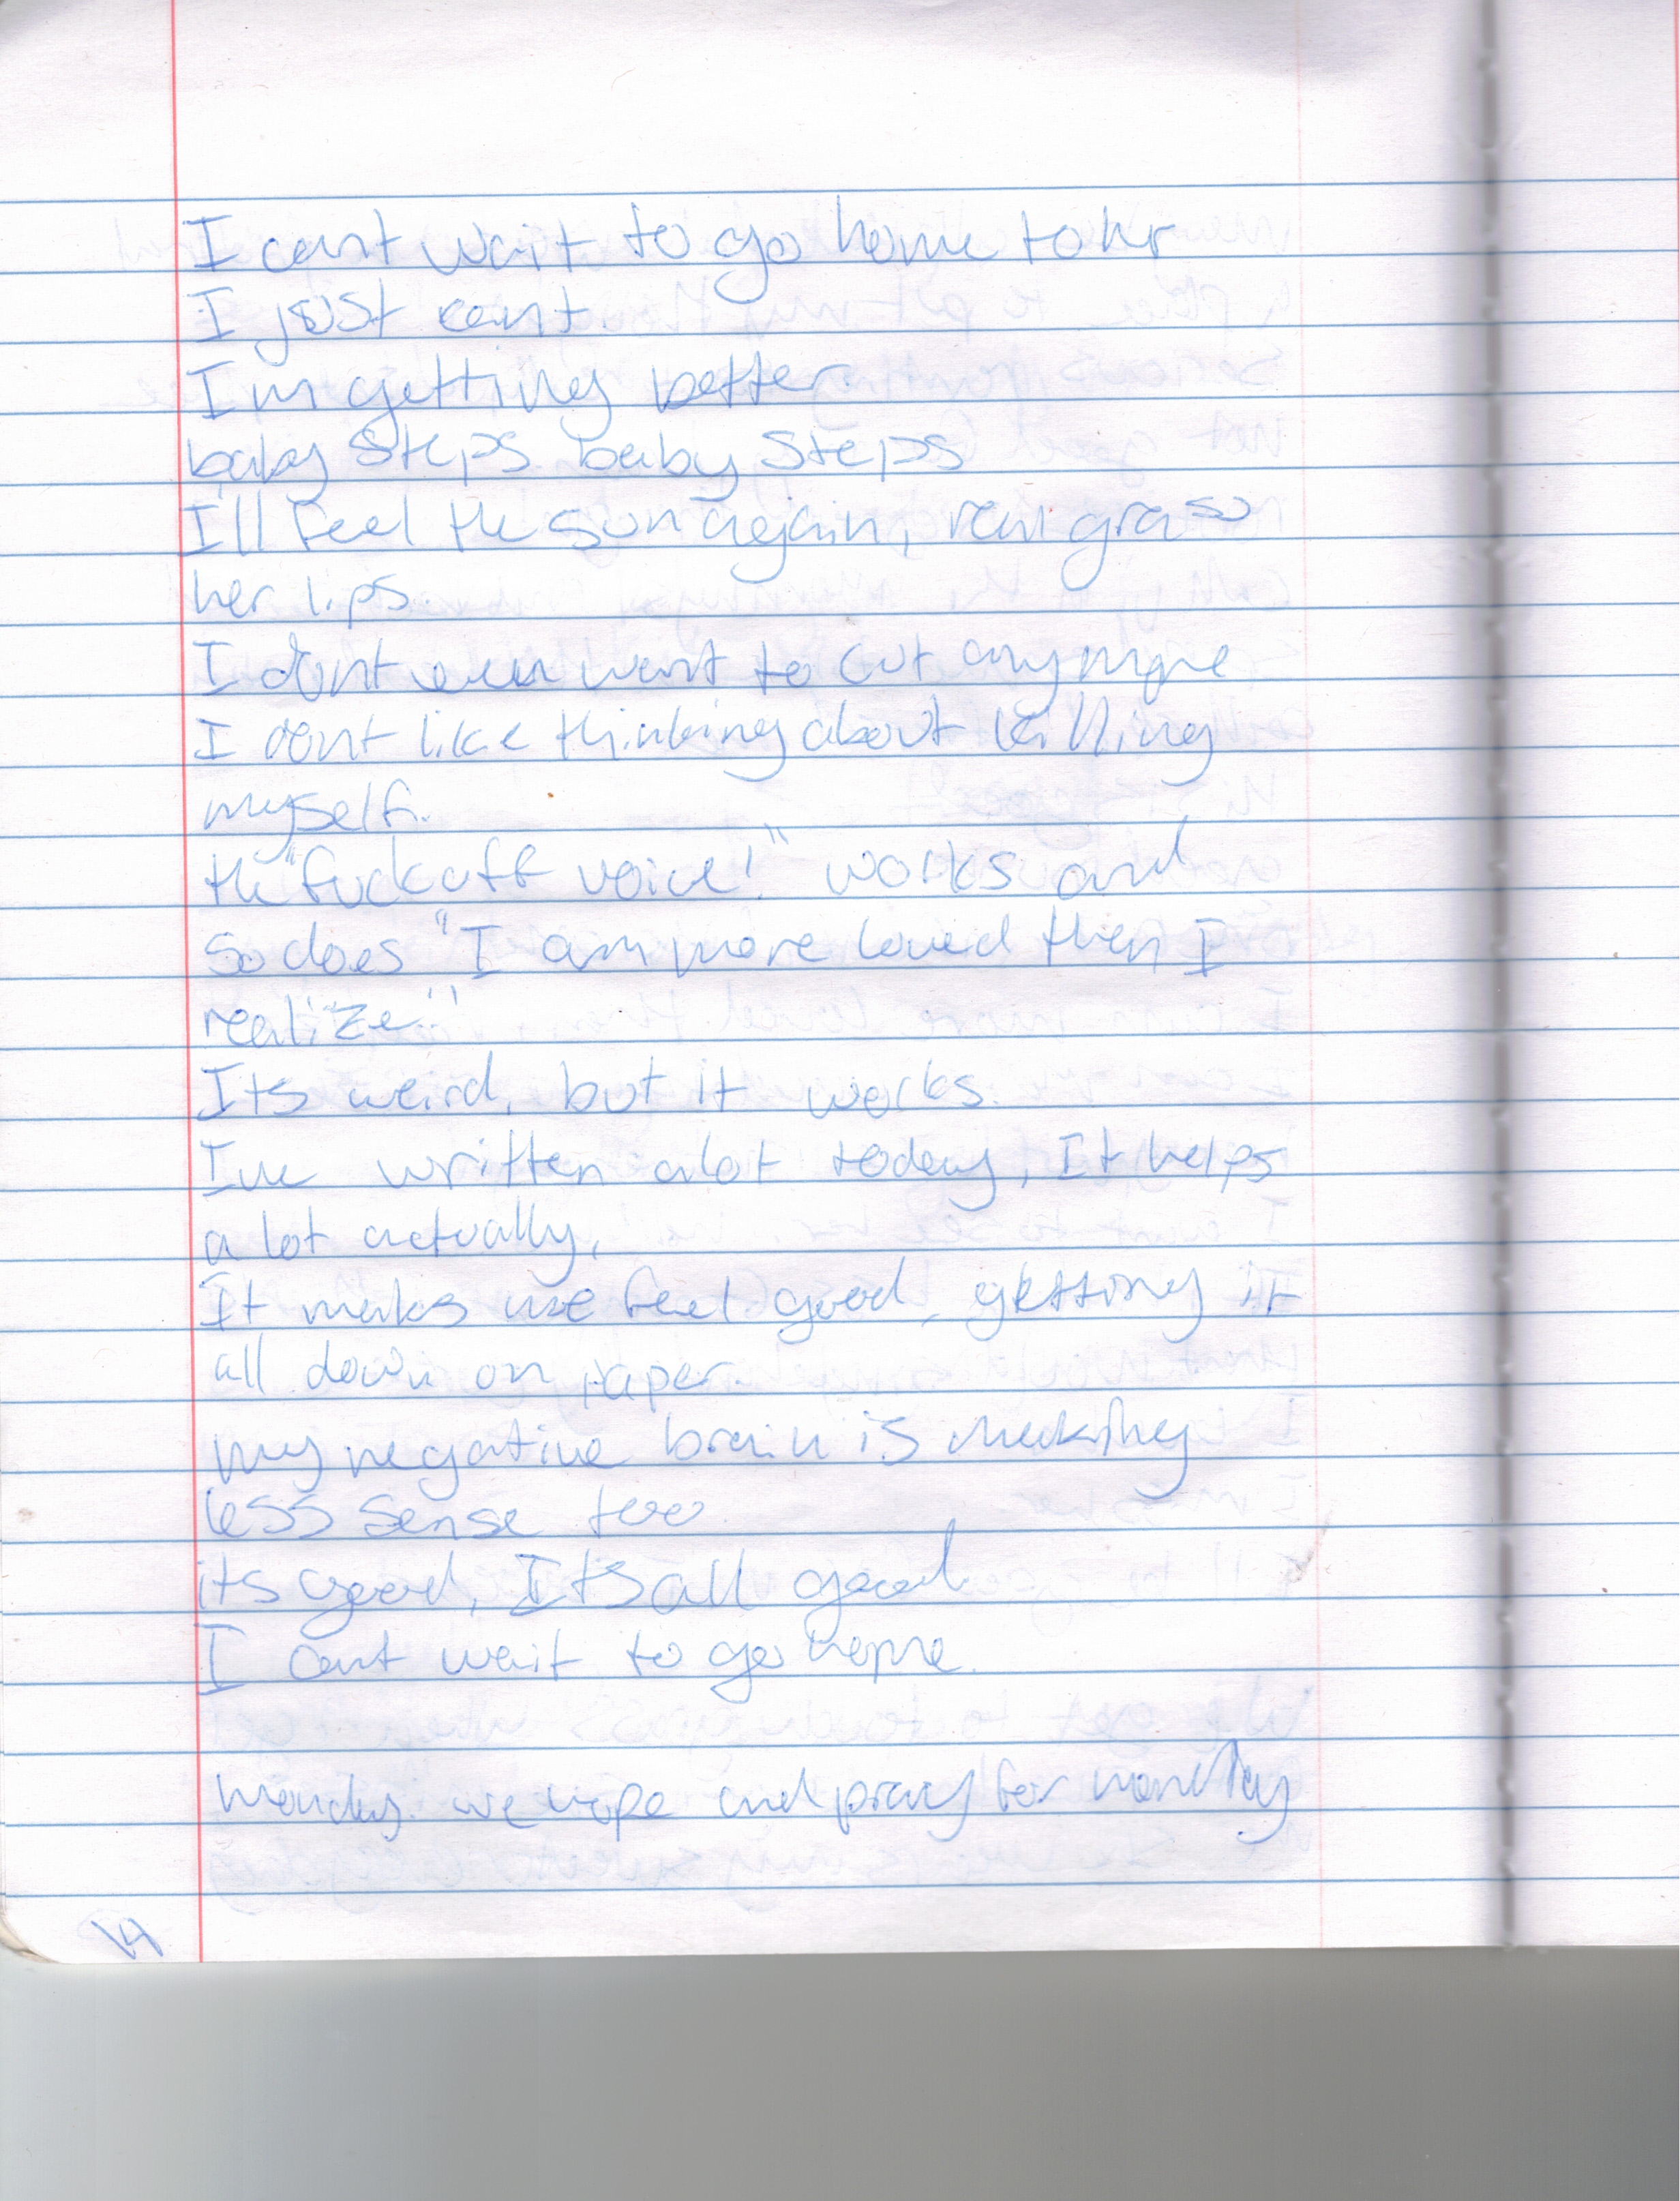 I cant wait to go home to hr
I just cant.
Im getting better.
baby steps baby steps
I'll feel the sun again, real grass
her lips.
I dont even want to cut anymore
I dont like thinking about killing
myself.
the "fuck off voice!" works and
so does "I am more loved then I
realize."
Its weird, but it works.
Ive written alot today, It helps
a lot actually,
It makes me feel good, getting it
all down on paper.
my negative brain is making
less sense too
its good, Its all good
I cant wait to go home.
monday. we hope and pray for monday
14